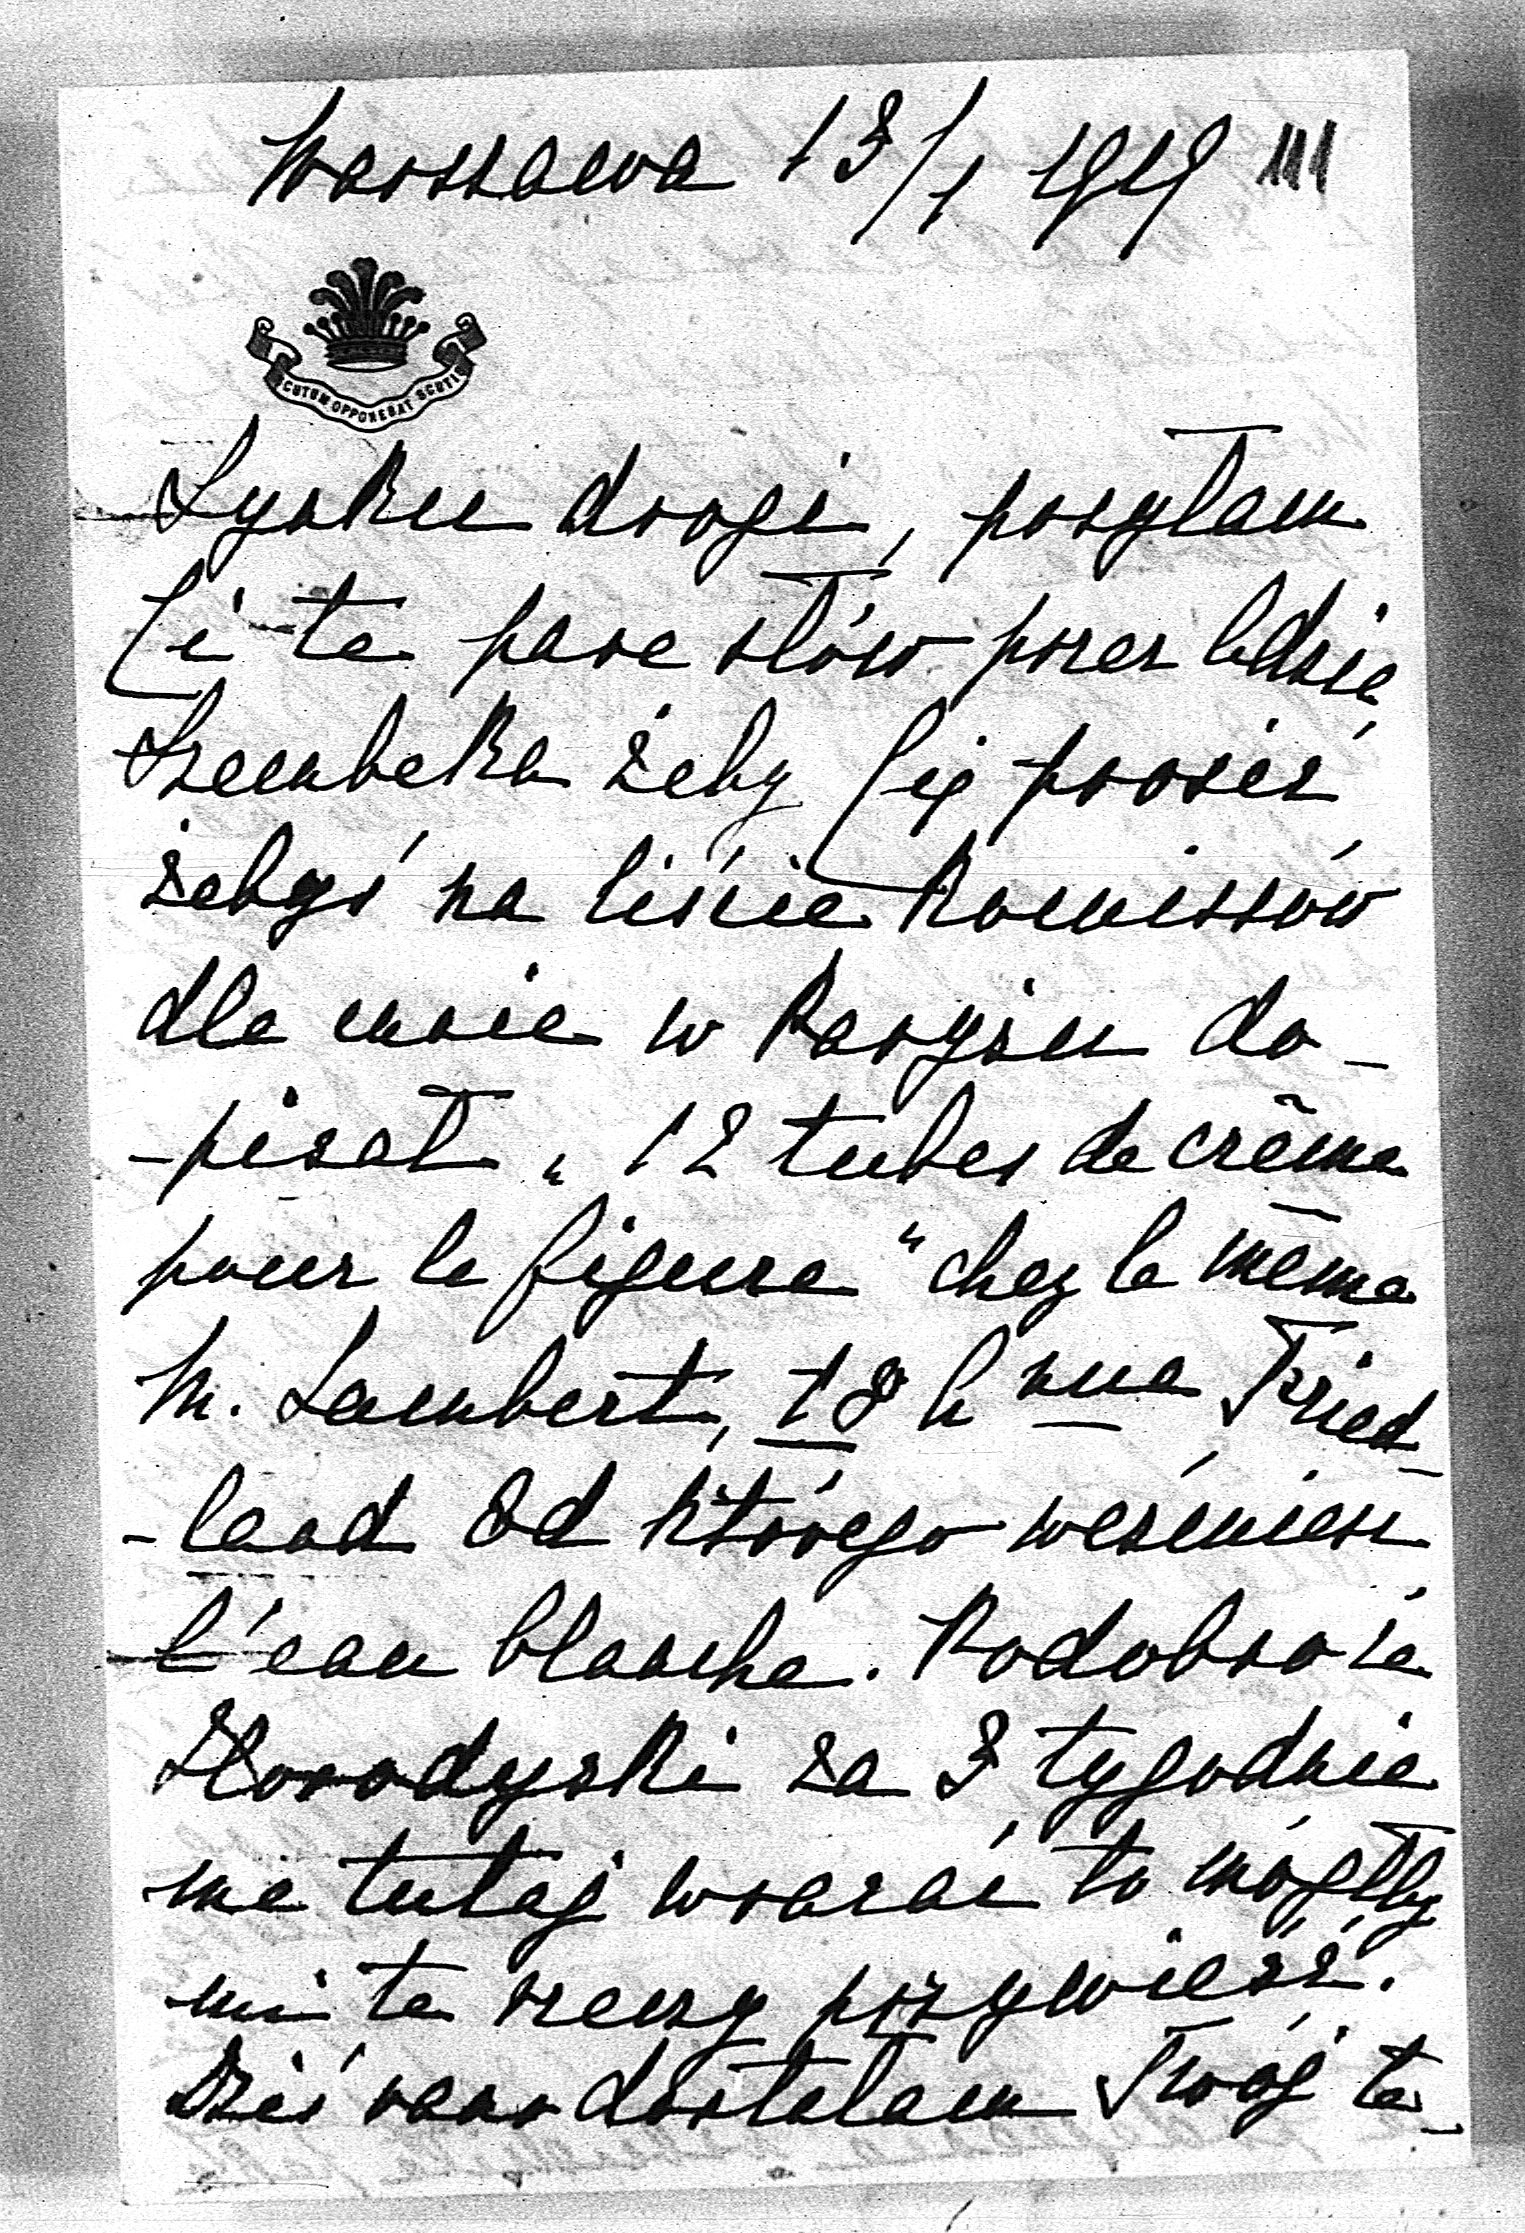 Warszawa 13/1 1919 111
SCUTUM OPPONEBAT SCUTIS
Synku drogi, posyłam
Ci te parę słów przez Edzia
Szembeka żeby Cię prosić
żebyś na liście komissów
dla mnie w Paryżu do-
-pisał „12 tubes de crême
pour la figure" chez le même
M. Lambert, 18 rue Fried-
-land od którego wezmiesz
l'eau blanche. Podobno że
Horodyski za 3 tygodnie
ma tutaj wracać to mógłby
mi te rzeczy przywieźć.
Dziś rano dostałam Twój te-